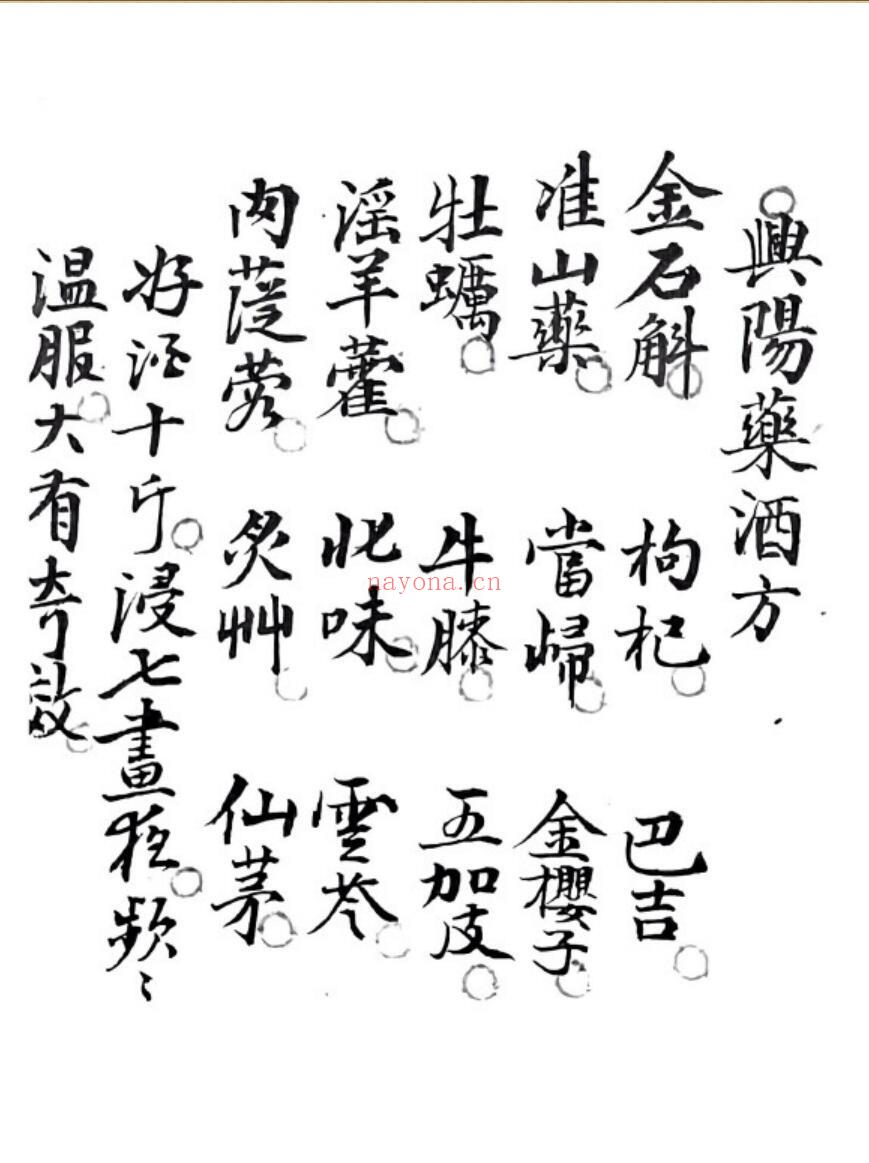 興陽藥酒方
金石斛 枸杞 巴吉
准山藥 當歸 金櫻子
牡蠣 牛膝 五加皮
淫羊藿 北味 雲苓
肉蓯蓉 炙艸 仙茅
好酒十斤浸七晝夜頻〻
温服大有奇效
nayona.cn